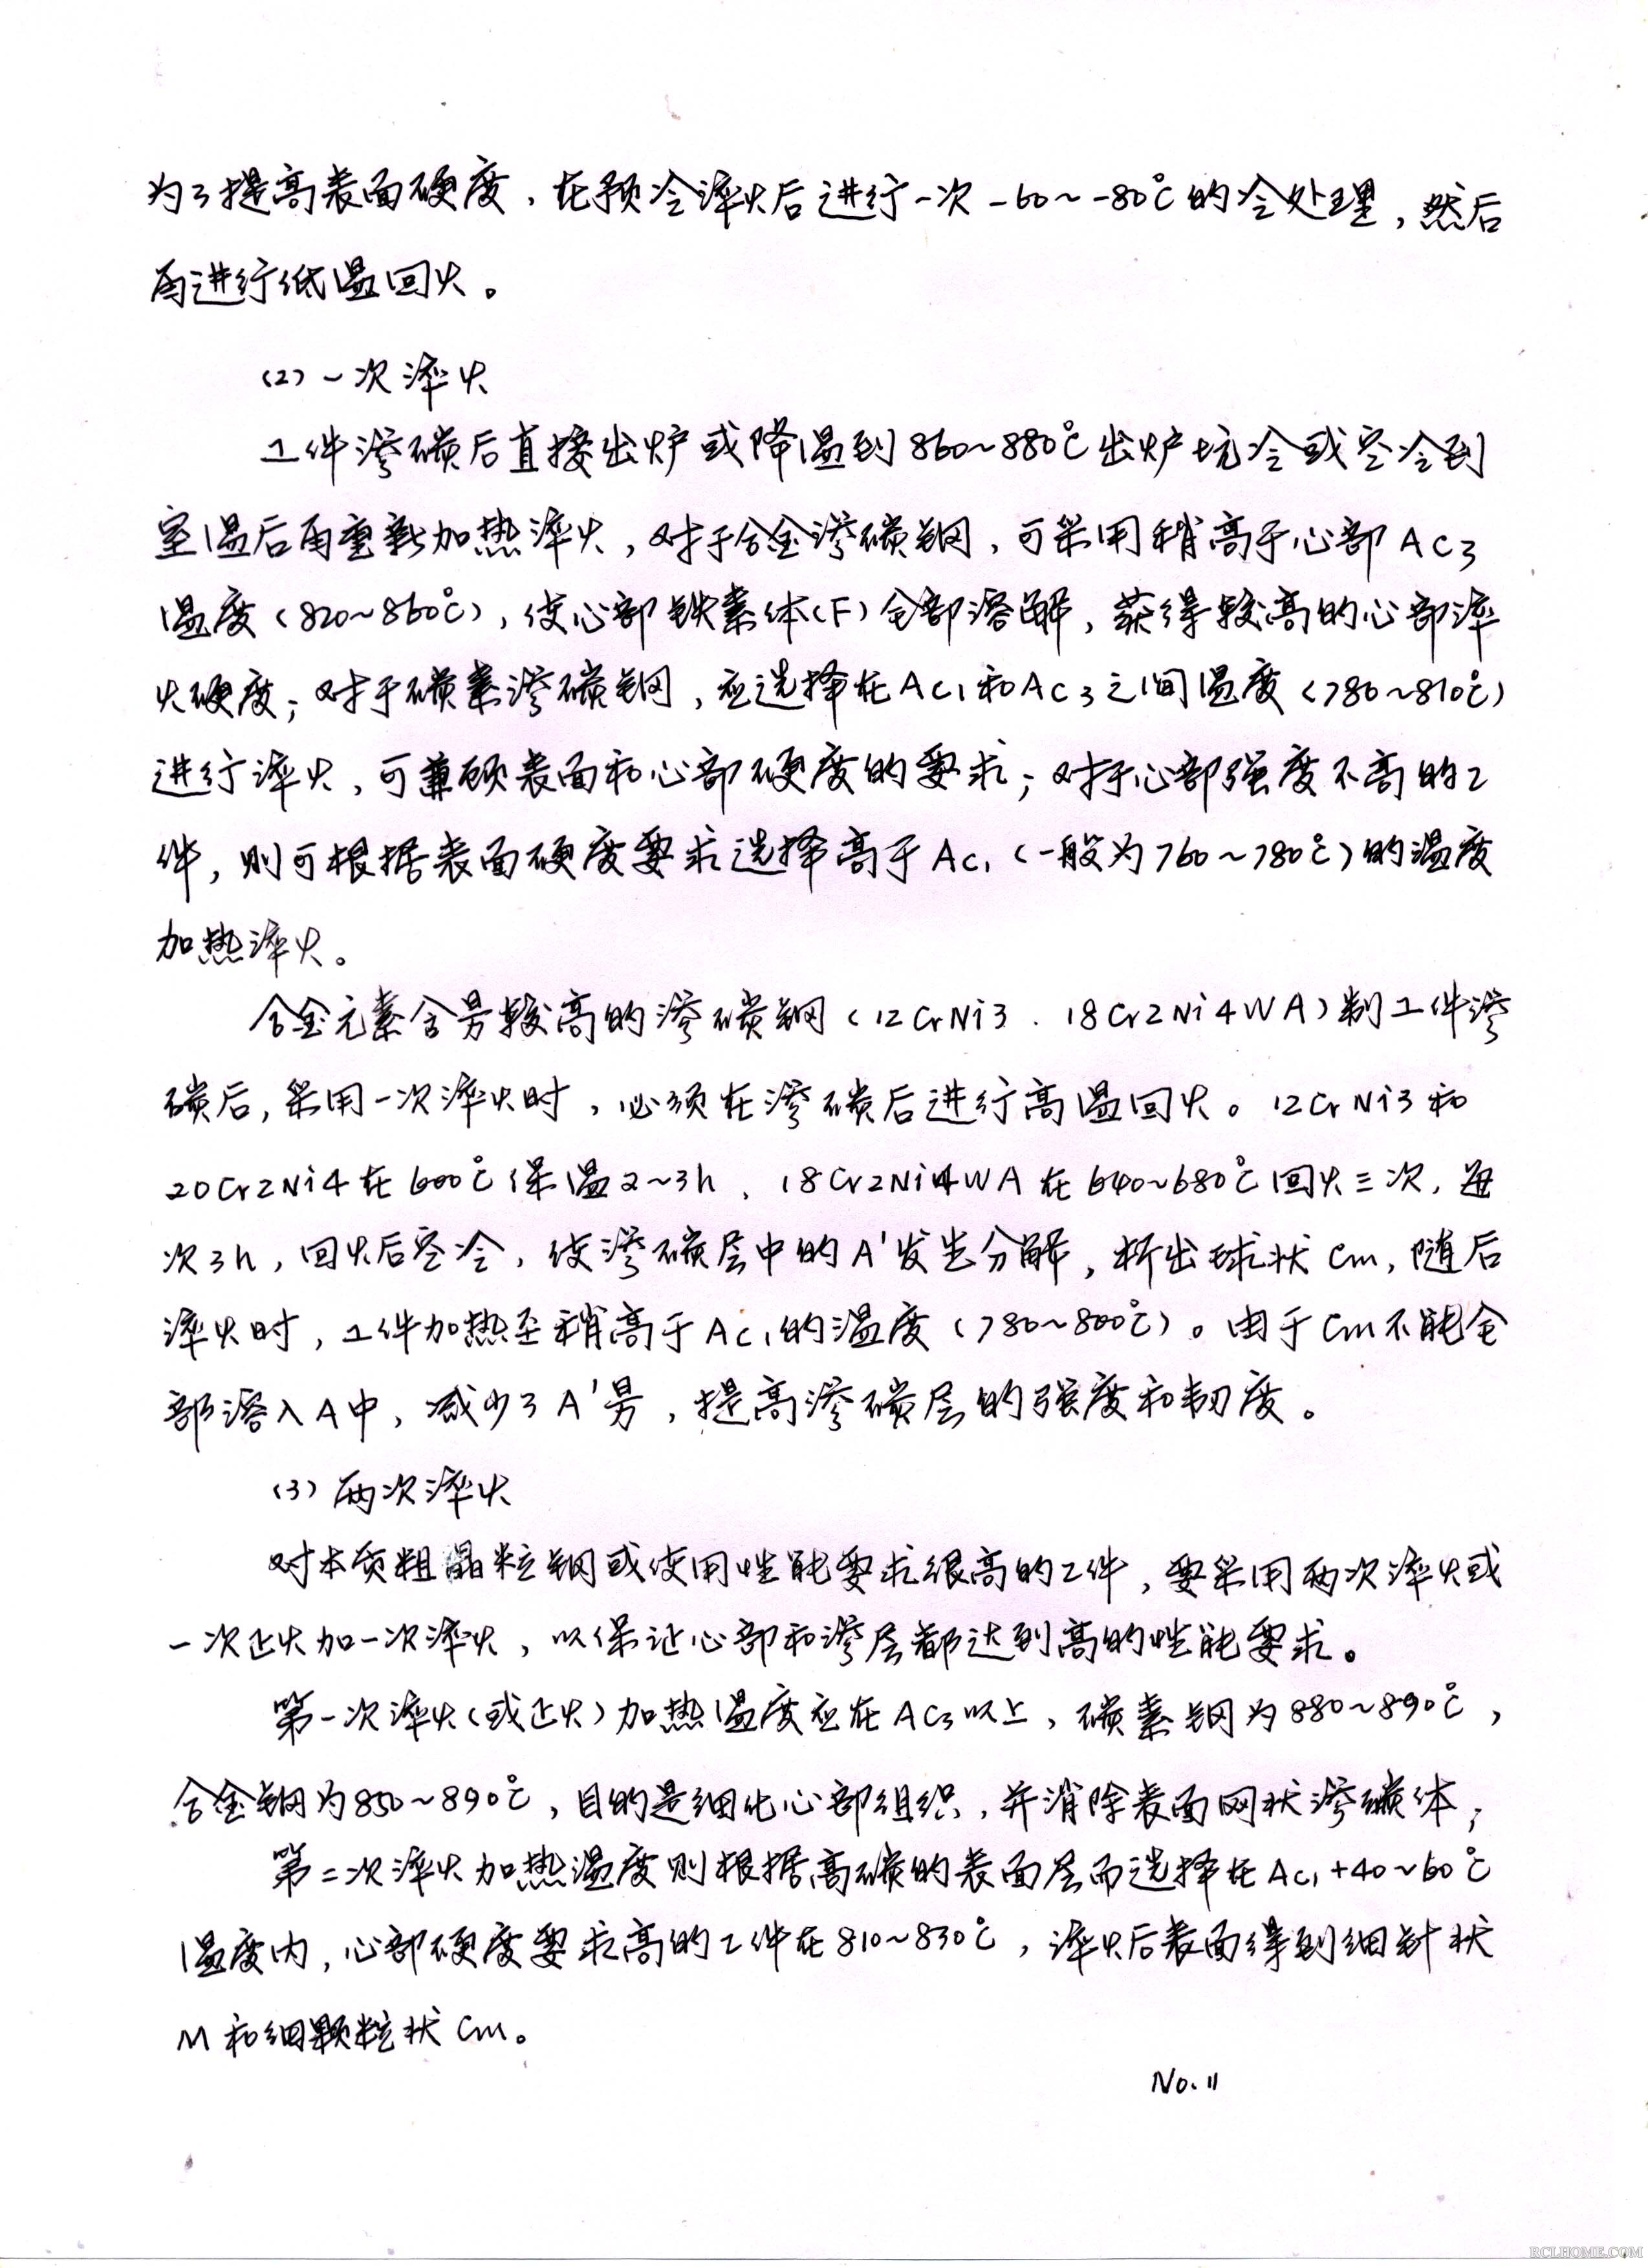 为了提高表面硬度，在预冷淬火后进行一次-60~-80℃的冷处理，然后
再进行低温回火。
(2)一次淬火
工件渗碳后直接出炉或降温到860~880℃出炉坑冷或空冷到
室温后再重新加热淬火，对于合金渗碳钢，可采用稍高于心部AC3
温度(820~860℃)，使心部铁素体(F)全部溶解，获得较高的心部淬
火硬度；对于碳素渗碳钢，应选择在AC1和AC3之间温度(780~810℃)
进行淬火，可兼顾表面和心部硬度的要求；对于心部强度不高的工
件，则可根据表面硬度要求选择高于AC1(一般为760~780℃)的温度
加热淬火。
合金元素含量较高的渗碳钢(12CrNi3、18Cr2Ni4WA)制工件渗
碳后，采用一次淬火时，必须在渗碳后进行高温回火。12CrNi3和
20Cr2Ni4在600℃保温2~3h、18Cr2Ni4WA在640~680℃回火三次，每
次3h，回火后空冷，使渗碳层中的A'发生分解，析出球状Cm，随后
淬火时，工件加热至稍高于AC1的温度(780~800℃)。由于Cm不能全
部溶入A中，减少了A'量，提高渗碳层的强度和韧度。
(3)两次淬火
对本质粗晶粒钢或使用性能要求很高的工件，要采用两次淬火或
一次正火加一次淬火，以保证心部和渗层都达到高的性能要求。
第一次淬火(或正火)加热温度应在AC3以上，碳素钢为880~890℃，
合金钢为850~890℃，目的是细化心部组织，并消除表面网状渗碳体；
第二次淬火加热温度则根据高碳的表面层而选择在AC1+40~60℃
温度内，心部硬度要求高的工件在810~830℃，淬火后表面得到细针状
M和细颗粒状Cm。
No.11
RCLHOME.COM